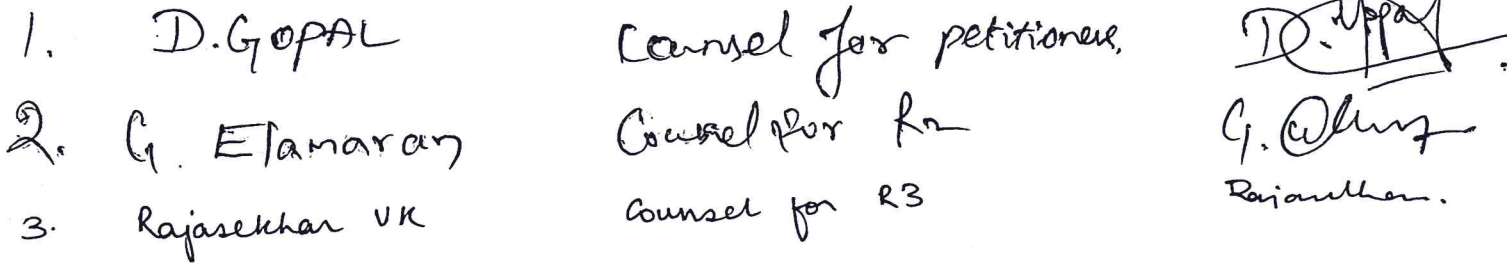 1. D.GOPAL Counsel for petitioners, D.Gopal
2. G. Elamaran Counsel for R2 G.
3. Rajasekhar VK Counsel for R3 Rajasekhar.